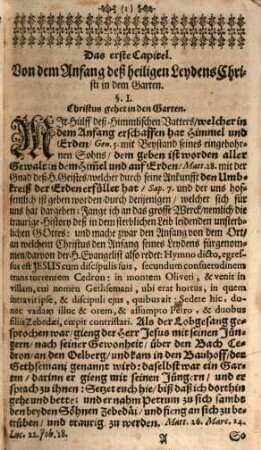 (1)
Das erste Capitel.
Von dem Anfang deß heiligen Leydens Chri-
sti in dem Garten.
§. I.
Christus gehet in den Garten.
MIt Hülff deß Himmlischen Vatters/ welcher in
dem Anfang erschaffen hat Himmel und
Erden/ Gen. 1. mit Beystand seines eingebohr-
nen Sohns/ dem geben ist worden aller
Gewalt in Himel und auf Erden/ Matt. 28. mit der
Gnad deß H. Geistes/ welcher durch seine Ankunfft den Umb-
kreiß der Erden erfüllet hat/ Sap. 7. und der uns hof-
fentlich ist geben worden durch denjenigen/ welcher sich für
uns hat dargeben: fange ich an das grosse Werck/ nemlich die
traurige History deß in dem sterblichen Leib leidenden unsterb-
lichen GOttes: und mache zwar den Anfang von dem Ort/
an welchem Christus den Anfang seines Leydens fürgenom-
men/ darvon der H. Evangelist also redet: Hymno dicto, egres-
sus est JESUS cum discipulis suis, secundum consuetudinem
trans torrentem Cedron: in montem Oliveti, & venit in
villam, cui nomen Gethsemani, ubi erat hortus, in quem
intravit ipse, & discipuli ejus, quibus ait: Sedete hic, do-
nec vadam illuc & orem, & assumpto Petro, & duobus
filiis Zebedæi, cœpit contristari. Als der Lobgesang ge-
sprochen war/ gieng der Herr Jesus mit seinen Jün-
gern/ nach seiner Gewonheit/ über den Bach Ce-
dron/ an den Oelberg/ und kam in den Bauhoff/ der
Gethsemani genannt wird: daselbst war ein Gar-
ten/ darinn er gieng mit seinen Jüngern/ und er
sprach zu ihnen: Setzet euch hie/ biß daß ich dorthin
gehe und bette: und er nahm Petrum zu sich sambt
den beyden Söhnen Zebedäi/ und fieng an sich zu be-
trüben/ und traurig zu werden. Matt. 26. Marc. 14.
Luc. 22. Joh. 18.
A So